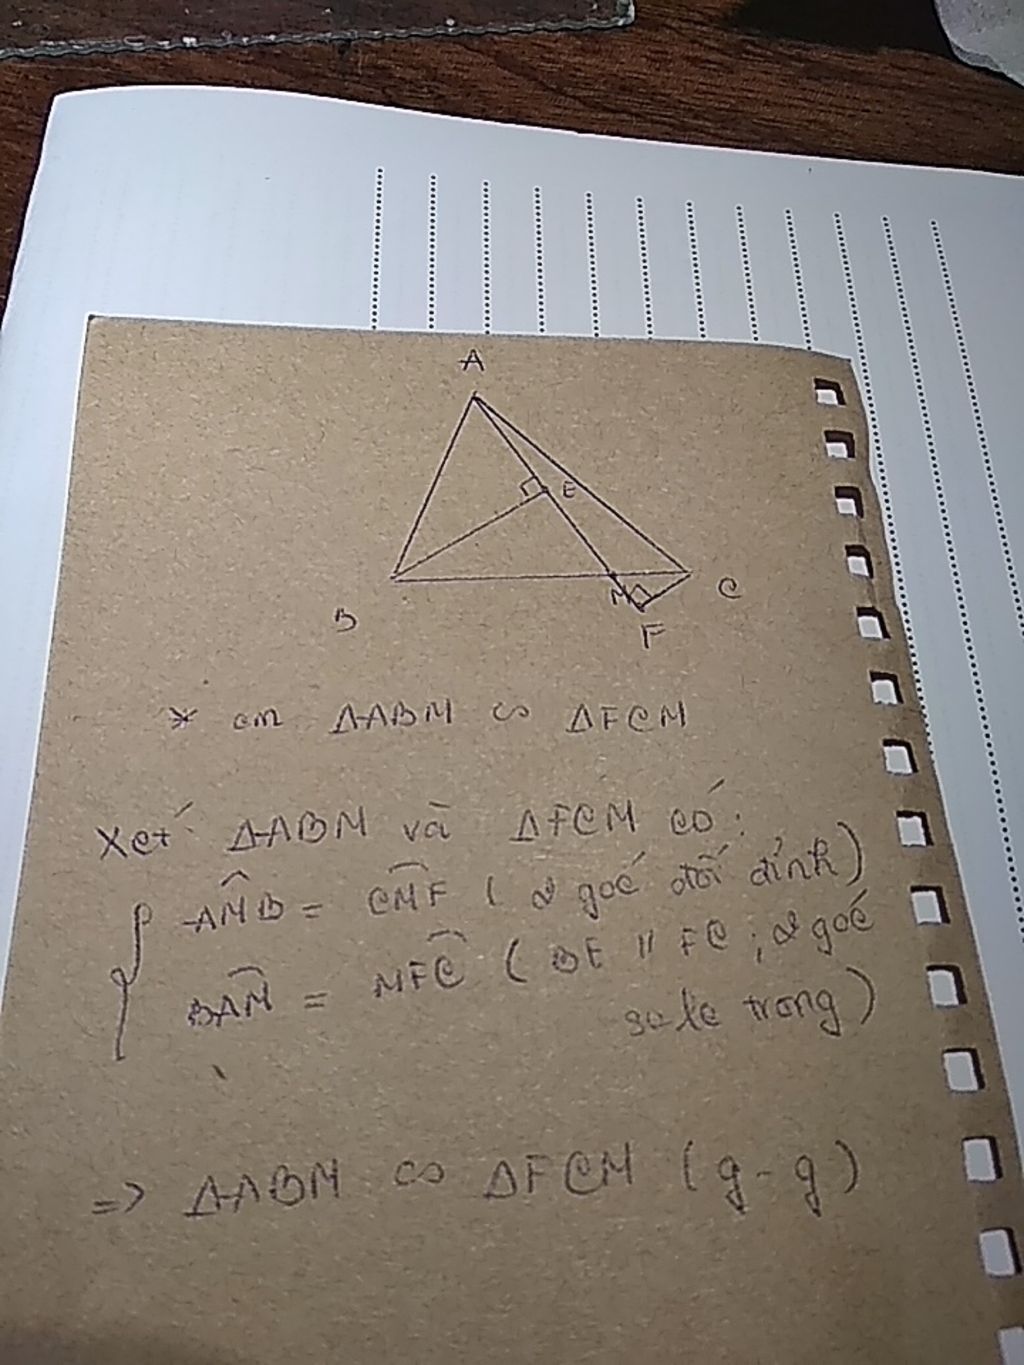 A
E
B
M
C
F
* cm ΔABM ∽ ΔFCM
Xét ΔABM và ΔFCM có:
AM̂B = CM̂F ( 2 góc đối đỉnh)
BAM̂ = MFĈ ( BE // FC ; 2 góc
so le trong)
=> ΔABM ∽ ΔFCM (g-g)